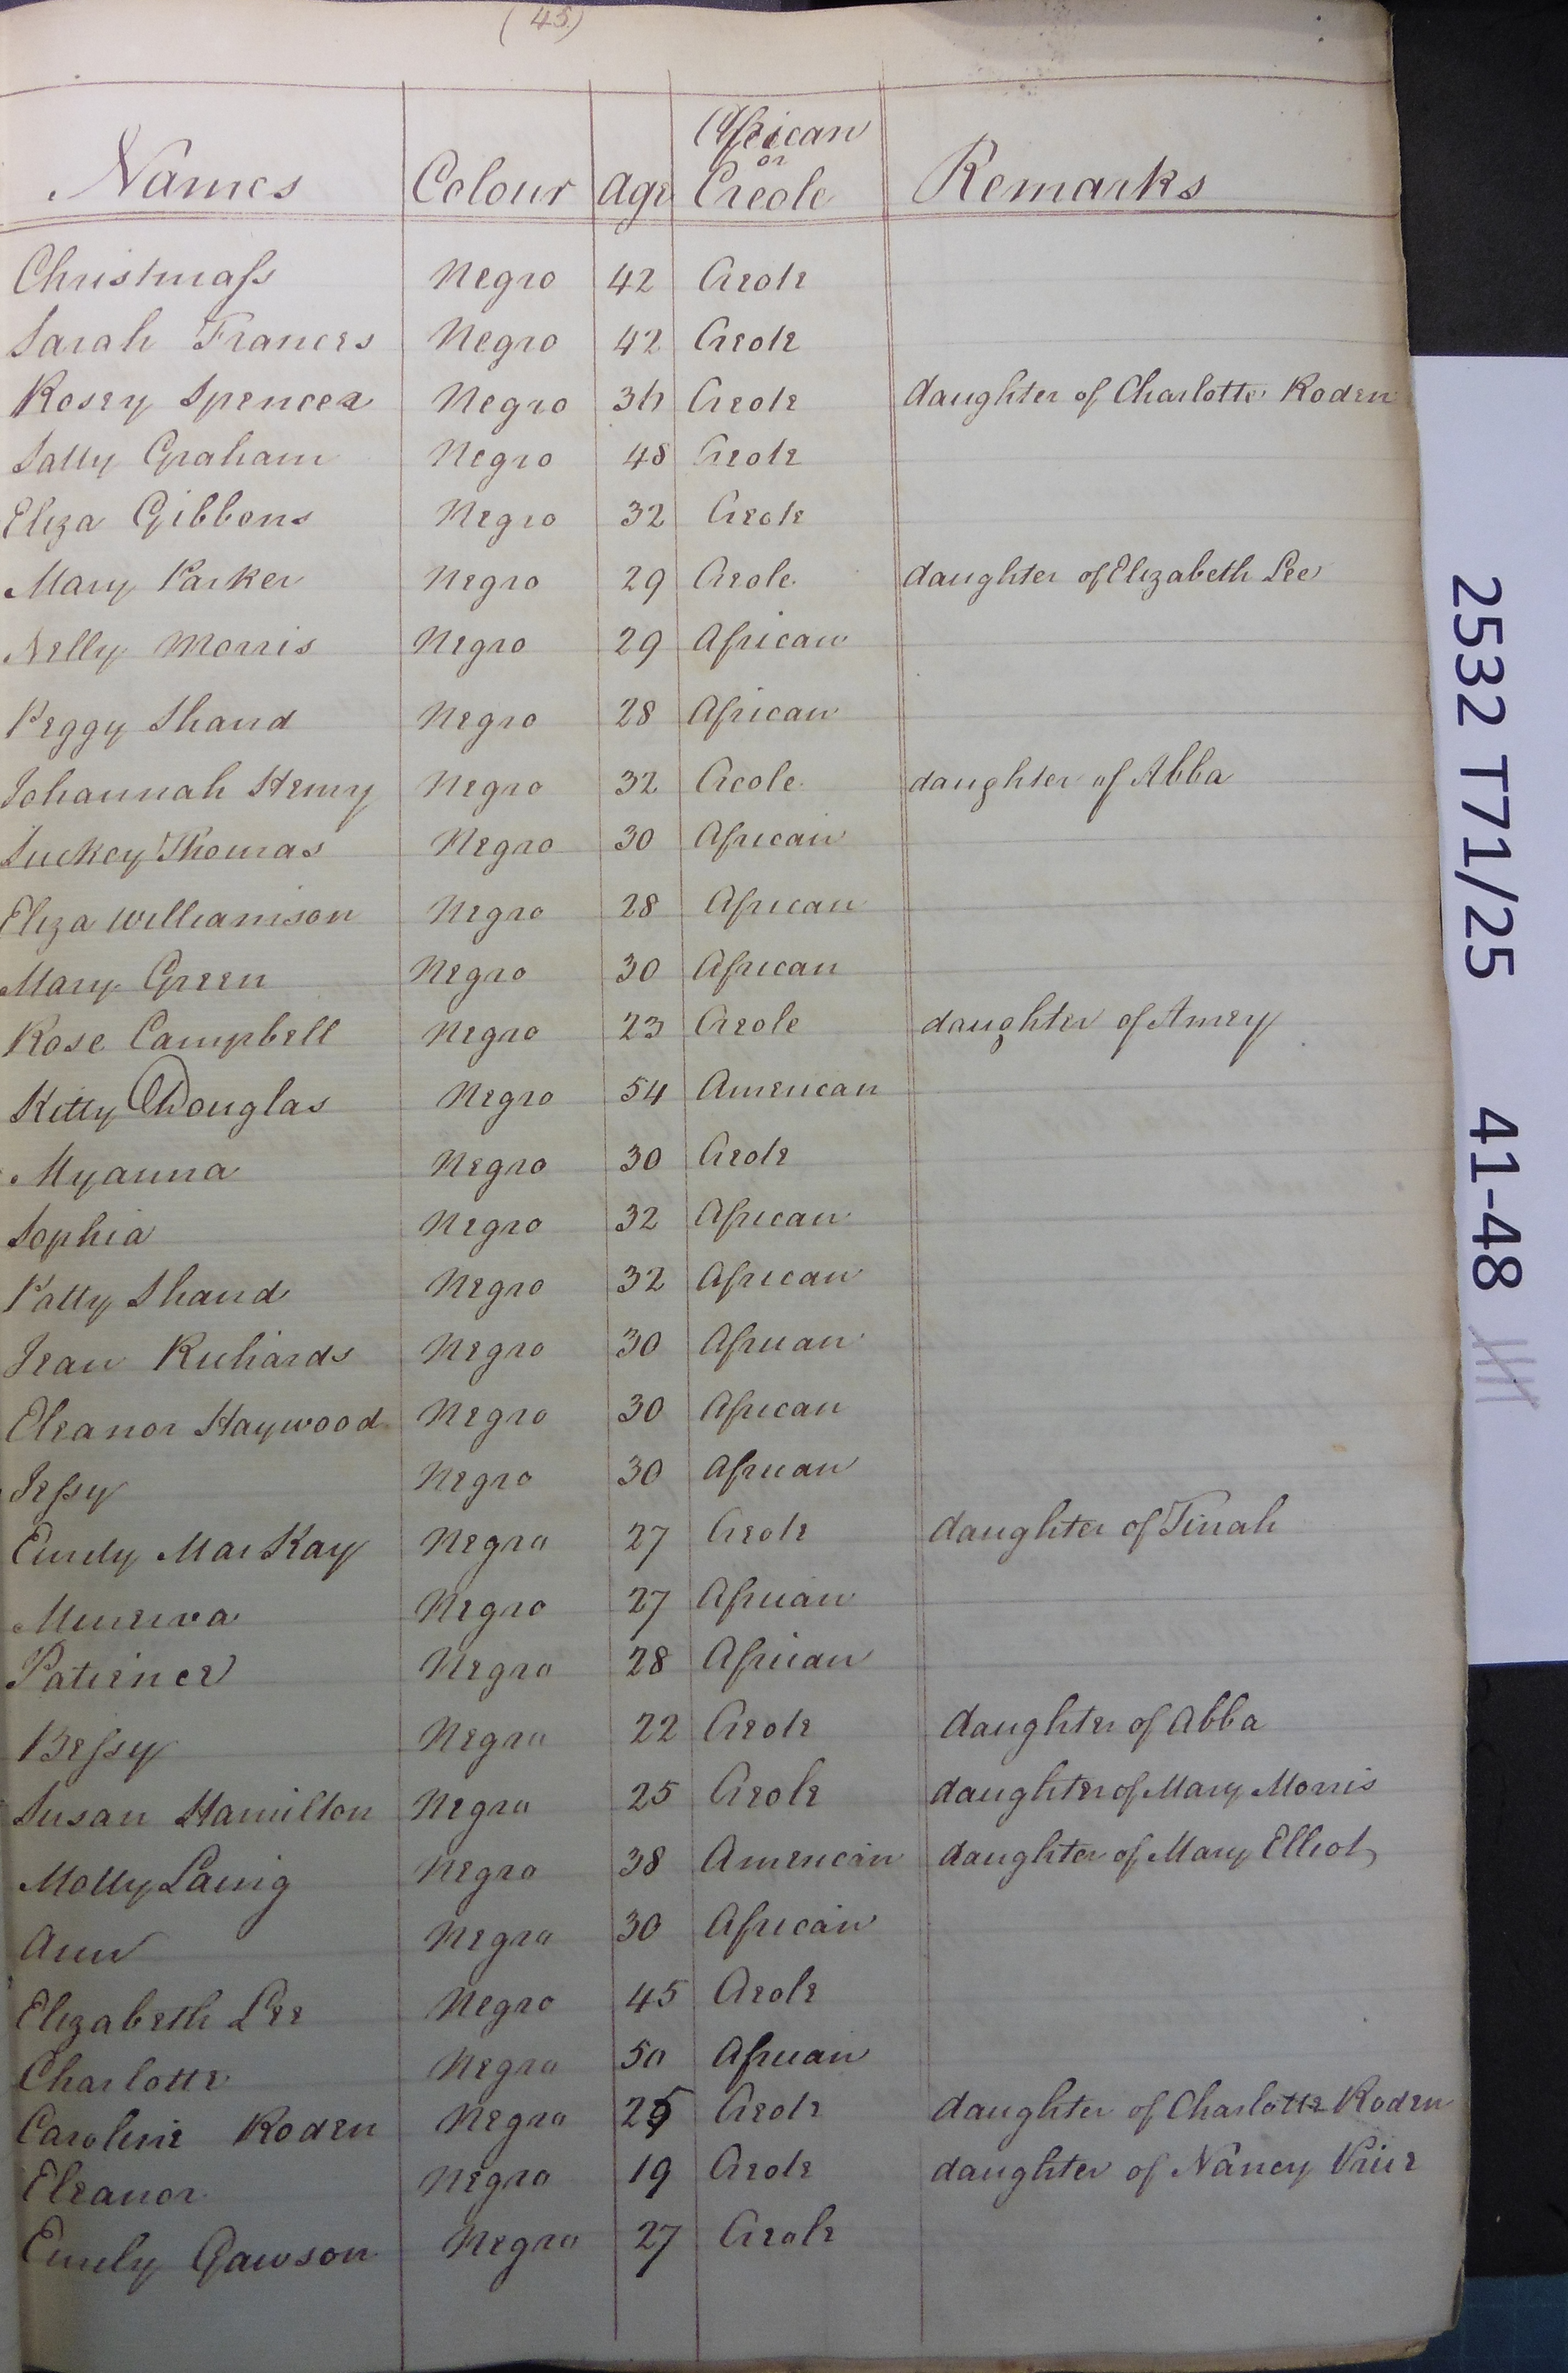 (45)
Names Colour Age African or Creole Remarks
Christmaſs Negro 42 Creole
Sarah Frances Negro 42 Creole
Rosey Spencer Negro 36 Creole daughter of Charlotte Roden
Sally Graham Negro 48 Creole
Eliza Gibbons Negro 32 Creole
Mary Parker Negro 29 Creole daughter of Elizabeth Lee
Nelly Morris Negro 29 African
Peggy Shand Negro 28 African
Johannah Henry Negro 32 Creole daughter of Abba
Suckey Thomas Negro 30 African
Eliza Williamson Negro 28 African
Mary Green Negro 30 African
Rose Campbell Negro 23 Creole daughter of Amey
Kitty Douglas Negro 54 American
Myanna Negro 30 Creole
Sophia Negro 32 African
Patty Shand Negro 32 African
Jean Richards Negro 30 African
Eleanor Haywood Negro 30 African
Jeſsy Negro 30 African
MacKay Negro 27 Creole daughter of Tinah
Minerva Negro 27 African
Patience Negro 28 African
Beſsy Negro 22 Creole daughter of Abba
Susan Hamilton Negro 25 Creole daughter of Mary Morris
Molly Laing Negro 38 American daughter of Mary Elliot
Ann Negro 30 African
Elizabeth Lee Negro 45 Creole
Charlotte Negro 50 African
Caroline Roden Negro 25 Creole daughter of Charlotte Roden
Eleanor Negro 19 Creole daughter of Nancy Price
Emily Negro 27 Creole
2532 T71/25 41-48